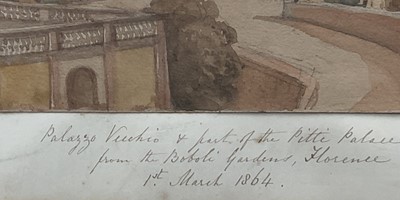 Palazzo Vecchio & part of the Pitti Palace
from the Boboli Gardens, Florence
1st. March 1864.